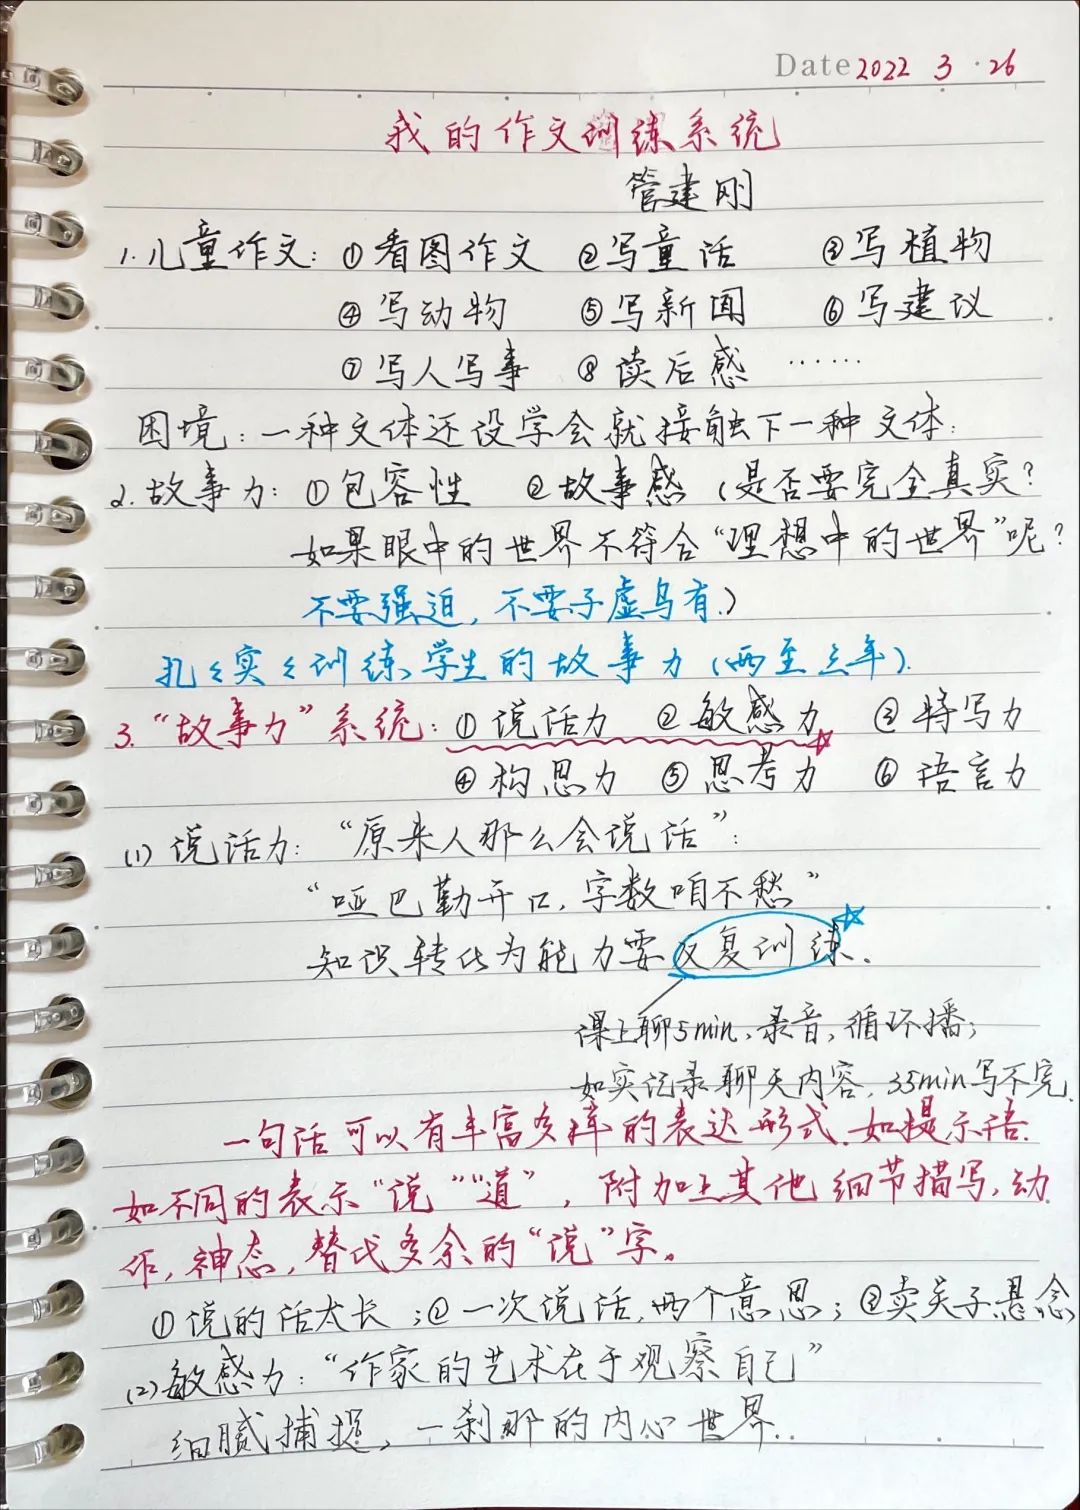 Date 2022 3 · 26
我的作文训练系统
管建刚
1.儿童作文:①看图作文 ②写童话 ③写植物
④写动物 ⑤写新闻 ⑥写建议
⑦写人写事 ⑧读后感 ……
困境:一种文体还没学会就接触下一种文体.
2.故事力:①包容性 ②故事感(是否要完全真实?
如果眼中的世界不符合“理想中的世界”呢?
不要强迫,不要子虚乌有.)
扎扎实实训练学生的故事力(两至三年).
3.“故事力”系统:①说话力 ②敏感力 ③特写力
④构思力 ⑤思考力 ⑥语言力
(1)说话力:“原来人那么会说话”:
“哑巴勤开口,字数咱不愁”
知识转化为能力要反复训练.
课上聊5min,录音,循环播;
如实记录聊天内容,35min写不完.
一句话可以有丰富多样的表达形式.如提示语.
如不同的表示“说”“道”,附加上其他细节描写,动
作,神态,替代多余的“说”字。
①说的话太长;②一次说话,两个意思;③卖关子悬念
(2)敏感力:“作家的艺术在于观察自己”
细腻捕捉,一刹那的内心世界..